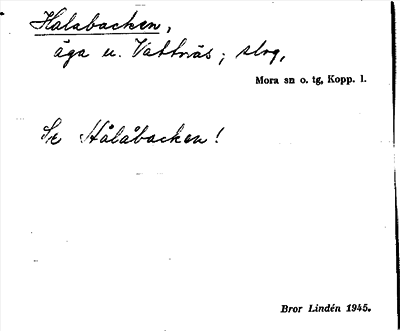 Halabacken,
äga u. Vattnäs; skog,
Mora sn o. tg, Kopp. l.
Se Hålåbacken!
Bror Lindén 1945.